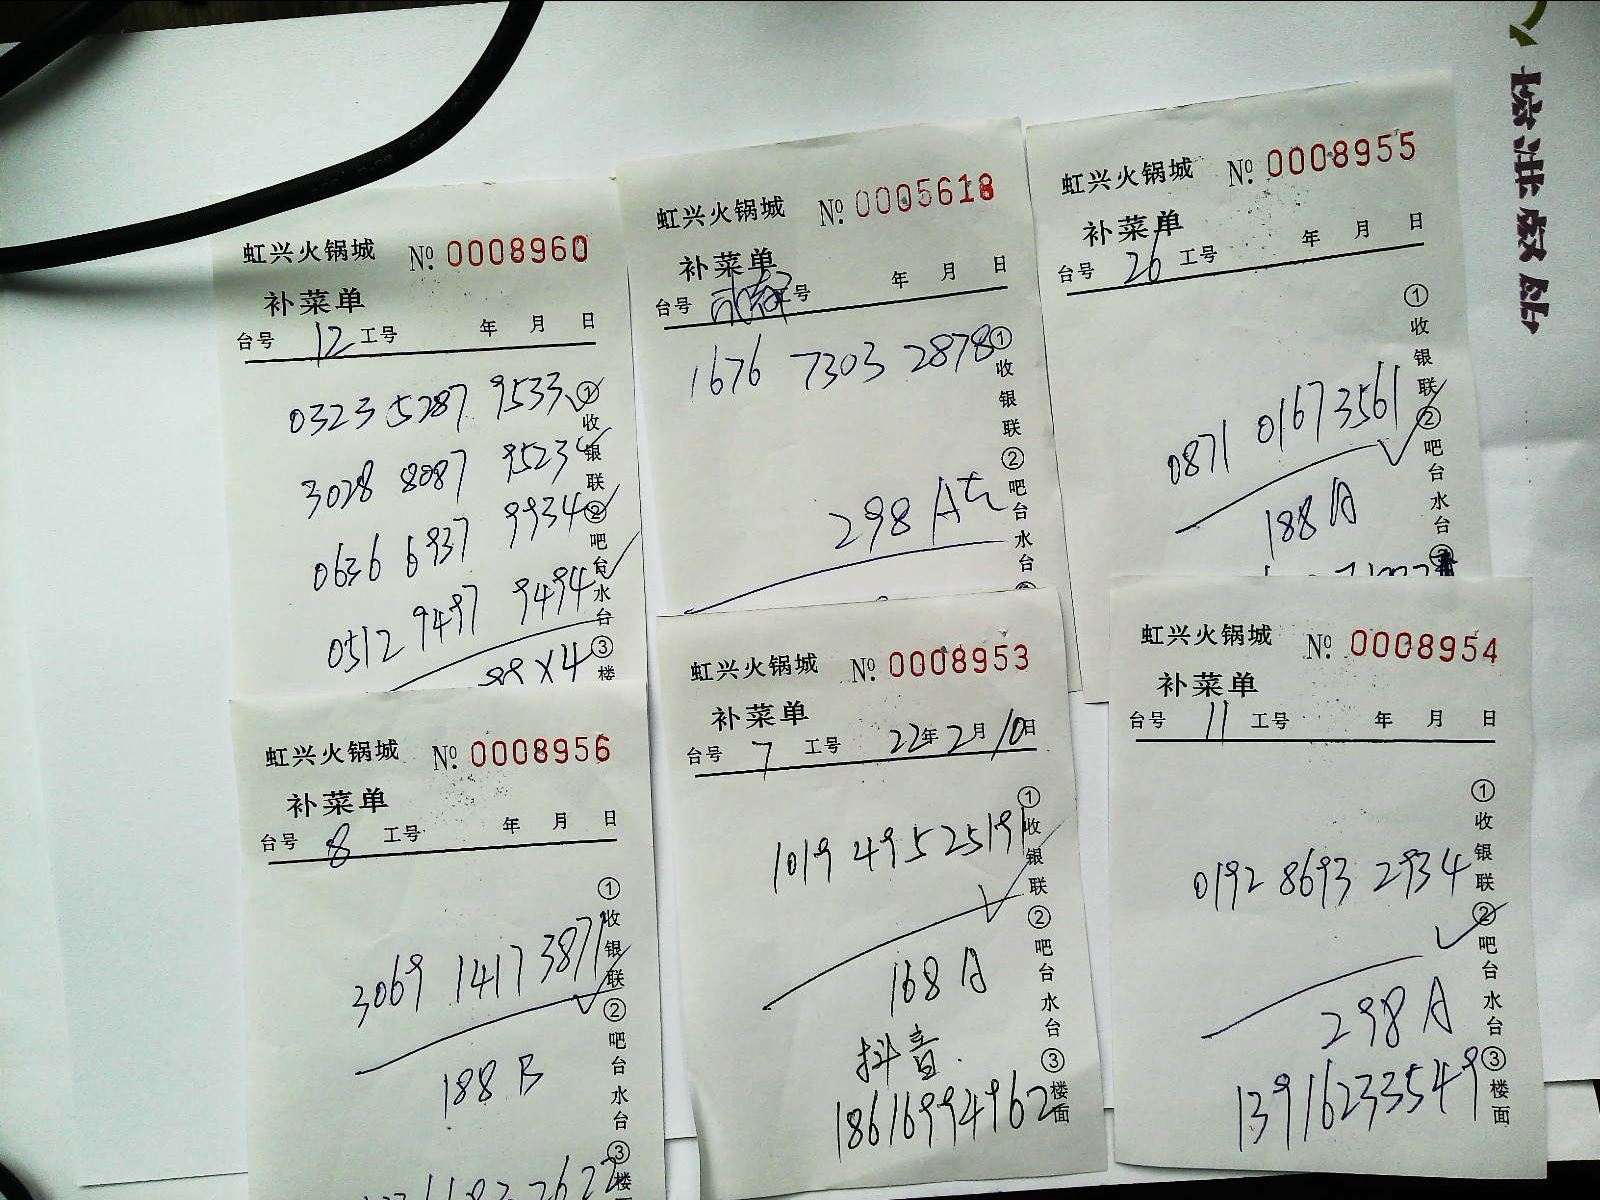 虹兴火锅城 №. 0008960
补菜单
台号 12 工号 年 月 日
0323 5287 9533
3028 8087 9523
0636 6937 9934
0512 9497 9494
×4
①收银联②吧台水台③楼
虹兴火锅城 №. 0005618
补菜单
台号 号 年 月 日
1676 7303 2878
298 A
①收银联②吧台水台
虹兴火锅城 №. 0008955
补菜单
台号 26 工号 年 月 日
0871 0167 3561
188 A
①收银联②吧台水台③
虹兴火锅城 №. 0008956
补菜单
台号 8 工号 年 月 日
3069 1417 3871
188 B
①收银联②吧台水台③楼
虹兴火锅城 №. 0008953
补菜单
台号 7 工号 22年 2月 10日
1019 4952519
168 A
抖音
18616994962
①收银联②吧台水台③楼面
虹兴火锅城 №. 0008954
补菜单
台号 11 工号 年 月 日
0192 8693 2934
298 A
13916233549
①收银联②吧台水台③楼面